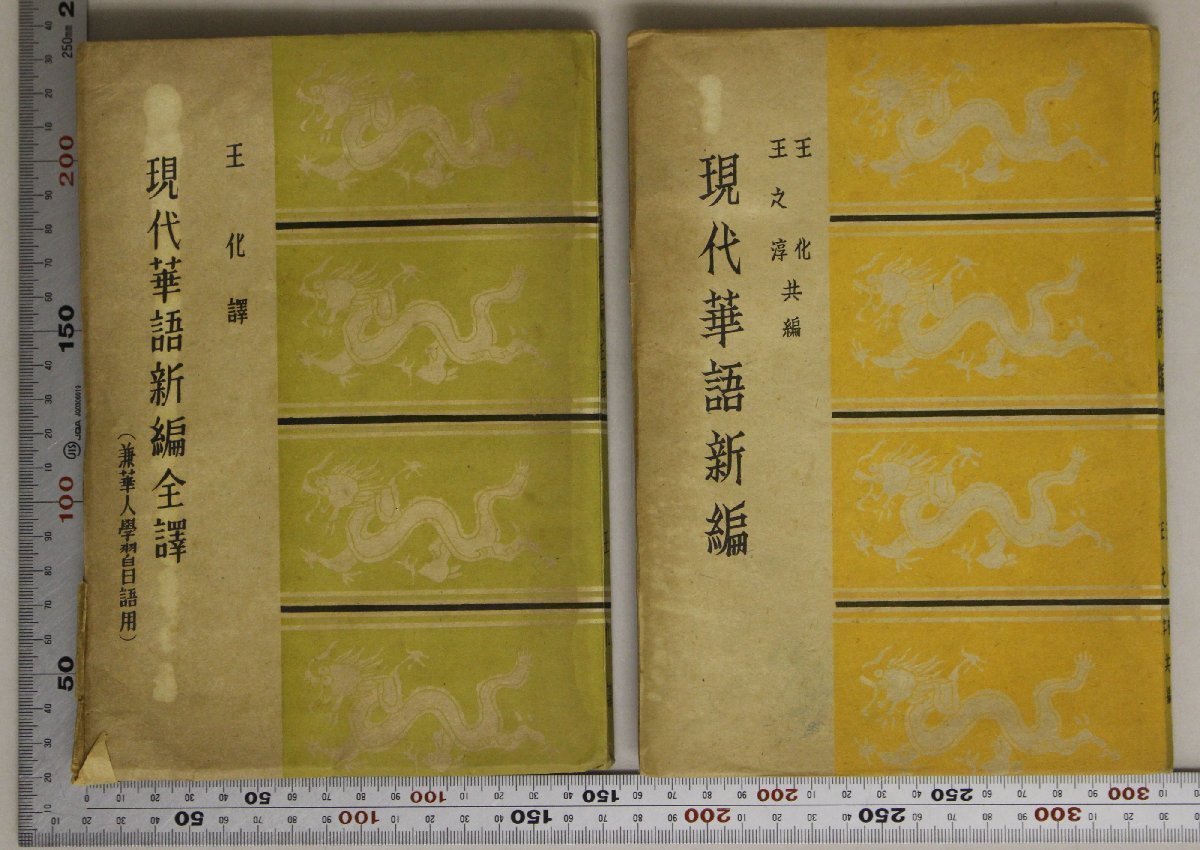 王化
王之淳
共編
現代華語新編
王化譯
現代華語新編全譯
（兼華人學習日語用）
250mm
200
150
100
50
JIS
JQA
50
100
150
200
250
300
50
100
150
200
250
300